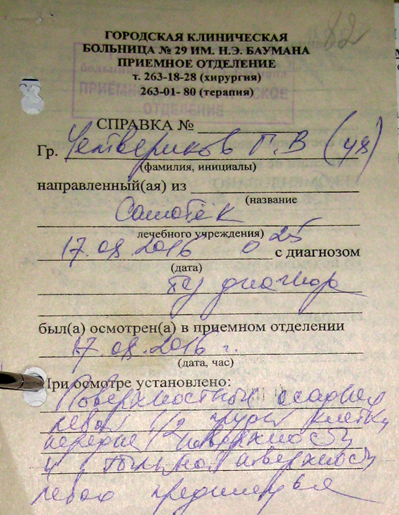 82
ГОРОДСКАЯ КЛИНИЧЕСКАЯ
БОЛЬНИЦА № 29 ИМ. Н.Э. БАУМАНА
ПРИЕМНОЕ ОТДЕЛЕНИЕ
т. 263-18-28 (хирургия)
263-01- 80 (терапия)
ОТДЕЛЕНИЕ
СПРАВКА №
Гр. Четвериков Г.В
(фамилия, инициалы)
направленный(ая) из
(название
Самотёк
лечебного учреждения)
17.08.2016 0 25 с диагнозом
(дата)
был(а) осмотрен(а) в приемном отделении
17.08.2016 г.
(дата, час)
При осмотре установлено:
Поверхностный
левой 1/2 грудной клетки
передне поверхности
и тыльной поверхности
левого предплечья